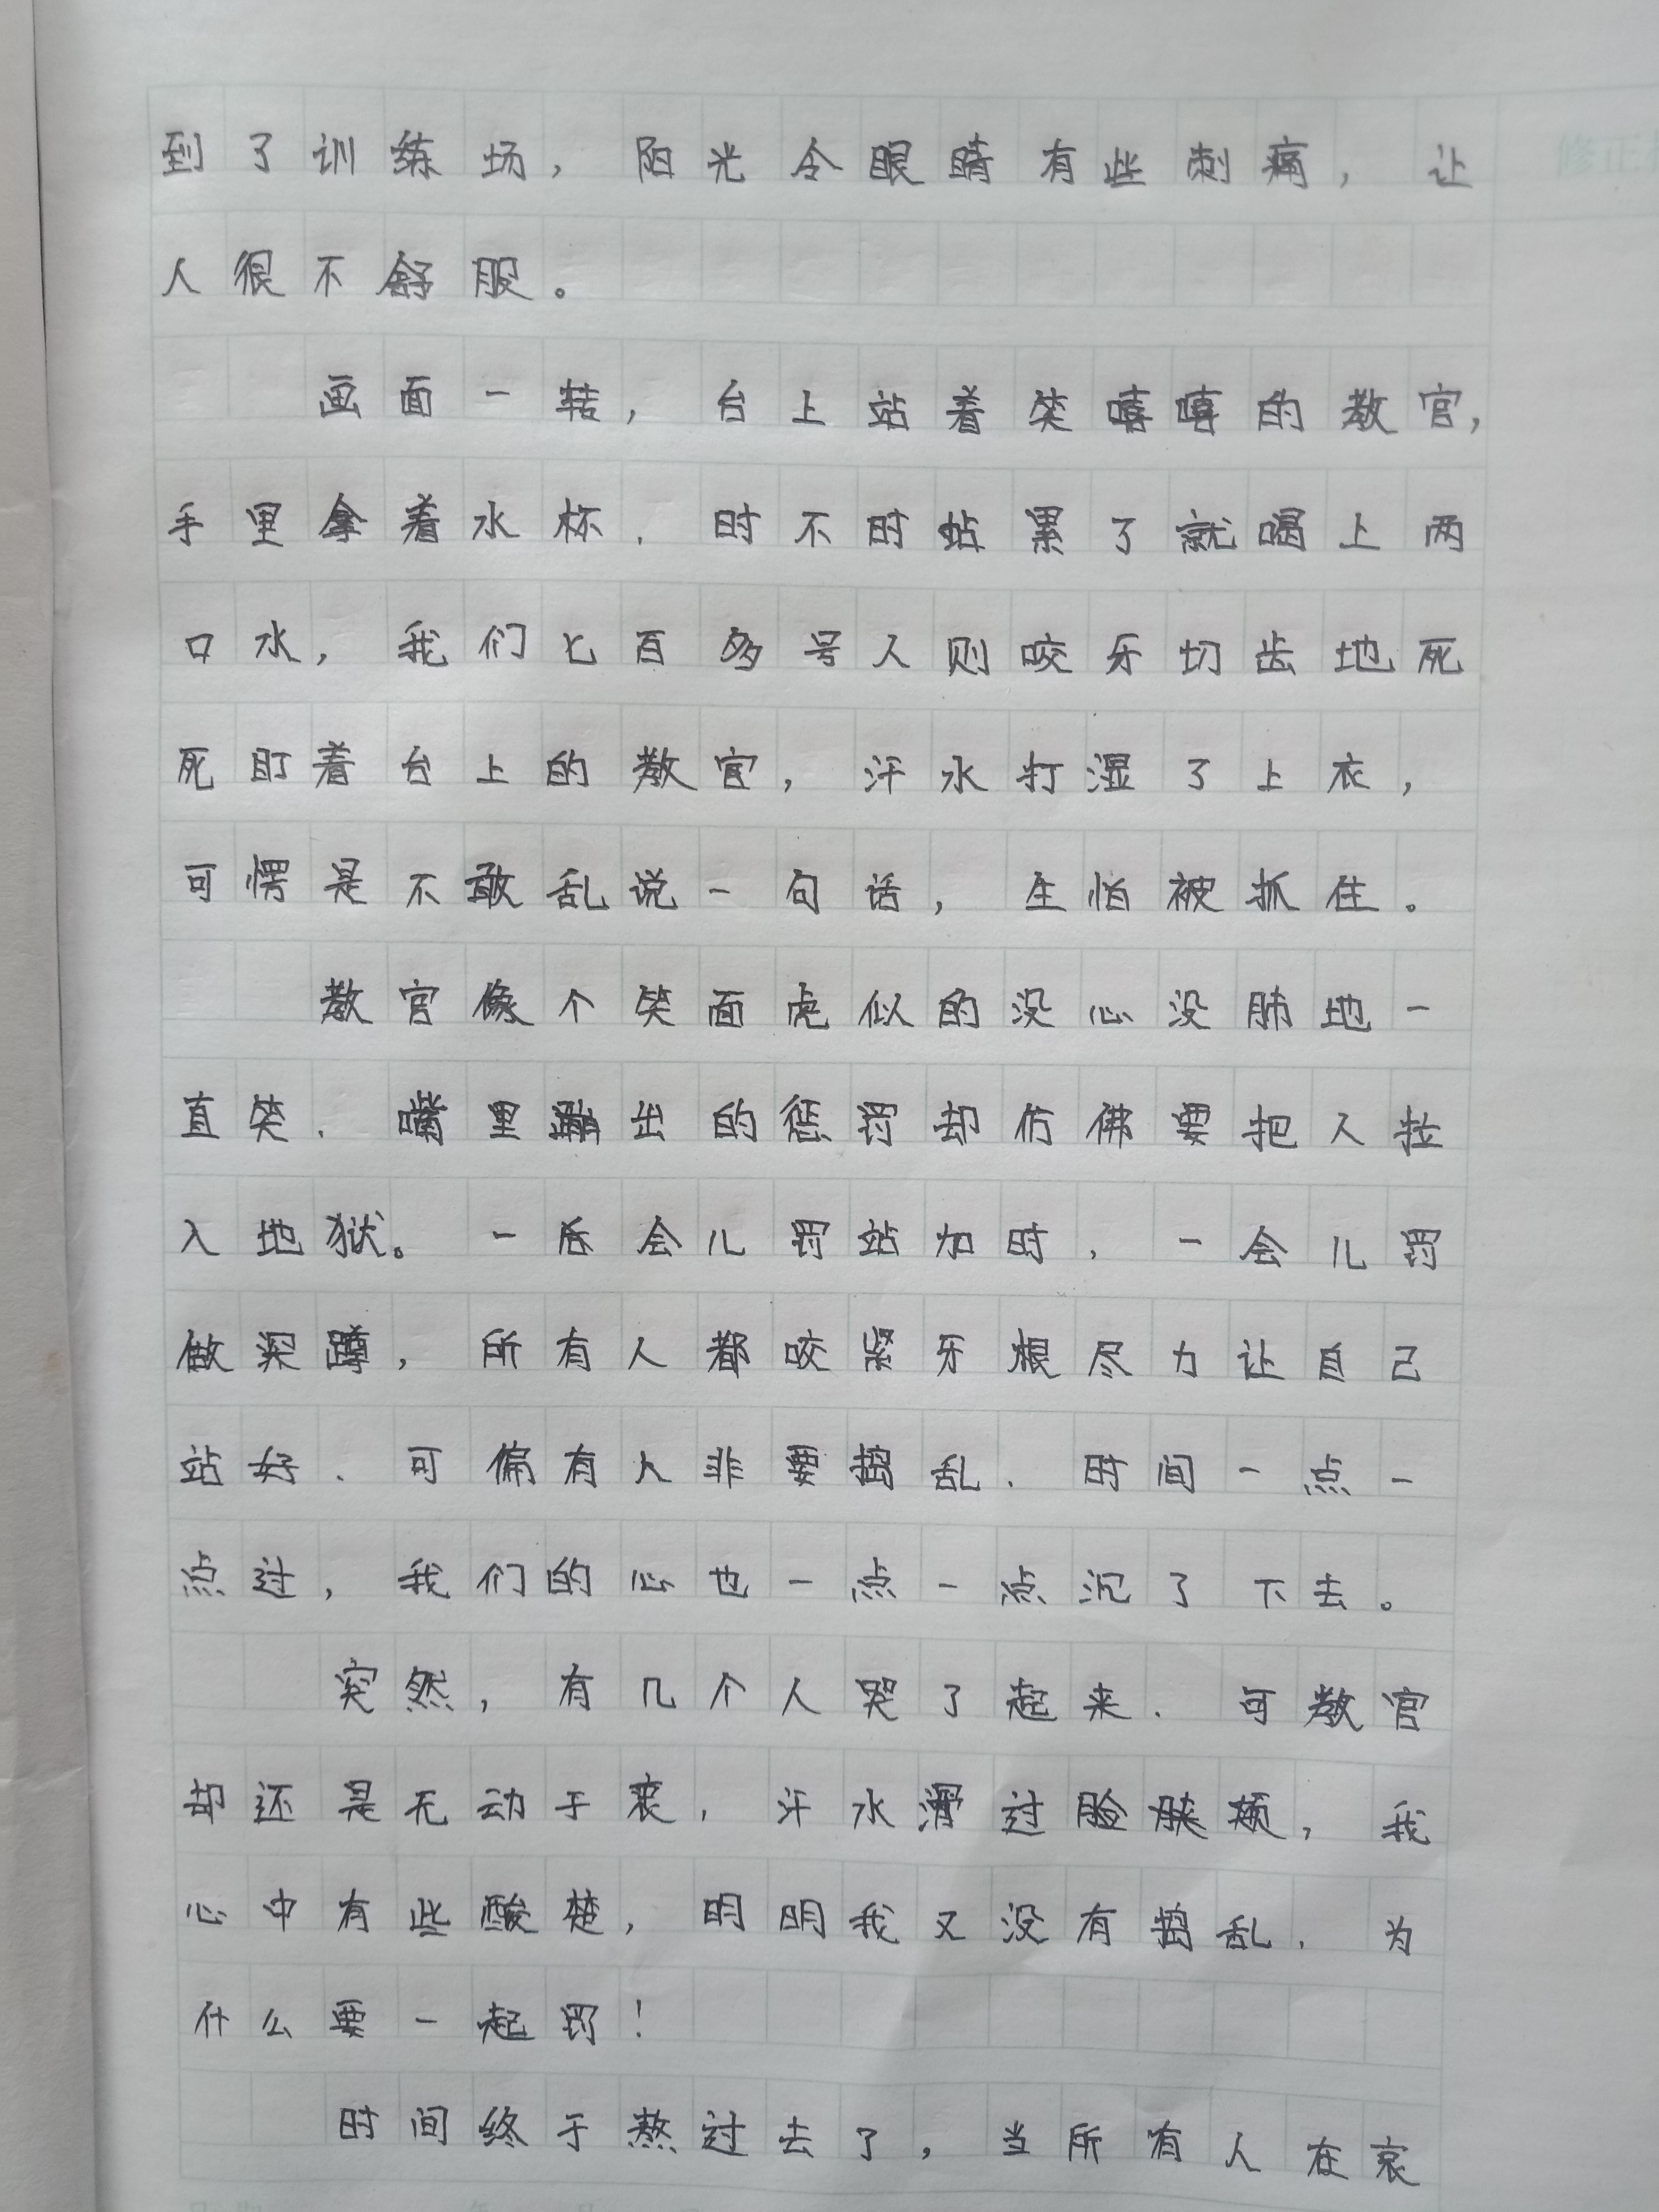 到了训练场，阳光令眼睛有些刺痛，让
人很不舒服。
画面一转，台上站着笑嘻嘻的教官，
手里拿着水杯，时不时站累了就喝上两
口水，我们七百多号人则咬牙切齿地死
死盯着台上的教官，汗水打湿了上衣，
可愣是不敢乱说一句话，生怕被抓住。
教官像个笑面虎似的没心没肺地一
直笑，嘴里蹦出的惩罚却仿佛要把人拉
入地狱。一会儿罚站加时，一会儿罚
做深蹲，所有人都咬紧牙根尽力让自己
站好，可偏有人非要捣乱，时间一点一
点过，我们的心也一点一点沉了下去。
突然，有几个人哭了起来，可教官
却还是无动于衷，汗水滑过脸颊，我
心中有些酸楚，明明我又没有捣乱，为
什么要一起罚！
时间终于熬过去了，当所有人在哀